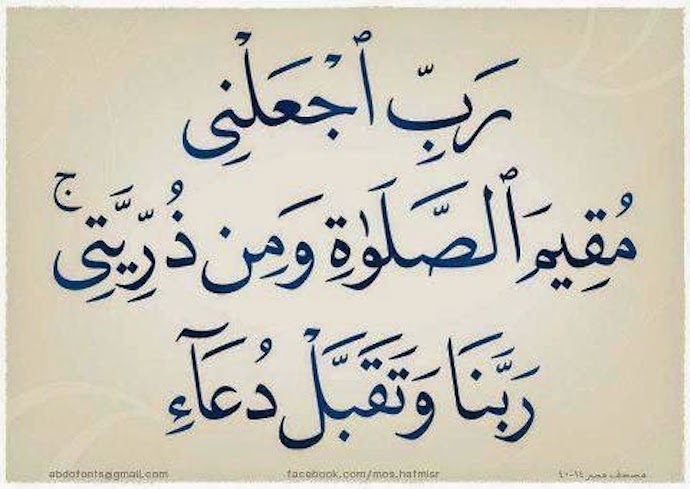 رَبِّ ٱجْعَلْنِى
مُقِيمَ ٱلصَّلَوٰةِ وَمِن ذُرِّيَّتِى ۚ
رَبَّنَا وَتَقَبَّلْ دُعَآءِ
abdofonts@gmail.com
facebook.com/mos.hafmisr
مصحف مصر ١٤-٤٠